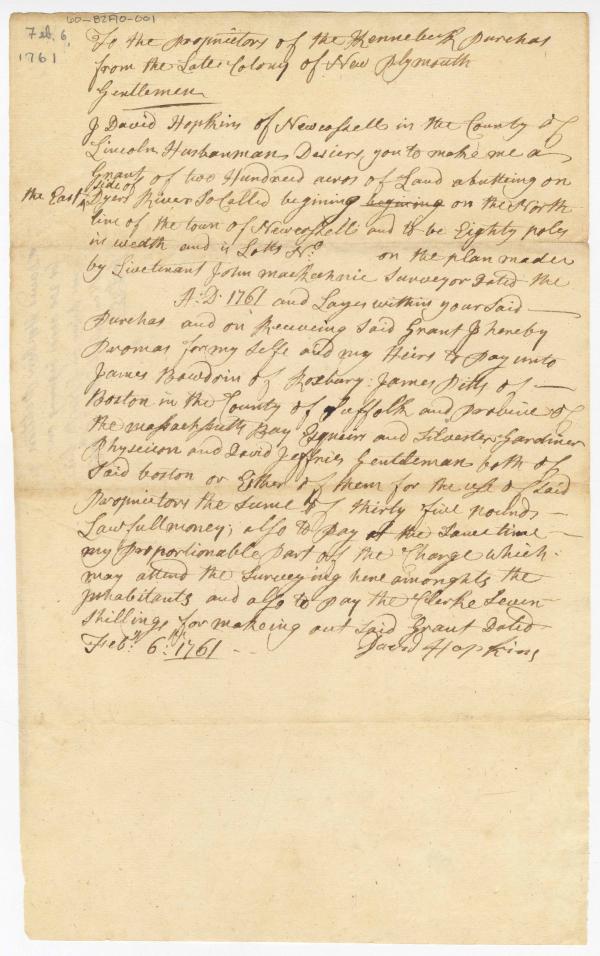 60-8290-001
Feb. 6,
1761
To the Proprietors of the Kennebeck Purchas
from the Late Colony of New Plymouth
Gentlemen
J David Hopkins of Newcassell in the County of
Lincoln Husbanman Desiers you to make me a
Grant of two Hundreed acros of Land abutting on
the East side of Dyers River So Called begining begining on the North
line of the town of Newcassell and to be Eighty poles
in wedth and is Lotts No. on the plan madee
by Livetenant John mackechnie Surveyor Dated the
A:D: 1761 and Layes within your Said
Purchas and on Receiveing Said Grant J hereby
Promas for my Selfe and my Heirs to Pay unto
James Bowdoin of Roxbury: James Pitts of
Boston in the County of Suffolk and provine of
the massachusetts Bay Esqueirs and Silvester Gardiner
Physecion and David Jeffries Gentleman both of
Said boston or Either of them for the use of Said
Proprietors the Sume of thirty five pounds
Lawfull money; also to Pay at the Same time
my Proportionable Part of the Charge which
may attend the Surveying here amonghts the
Jnhabitants and also to pay the Clerke Seven
Shillings for makeing out Said Grant Dated
Feby. 6th. 1761 David Hopkins